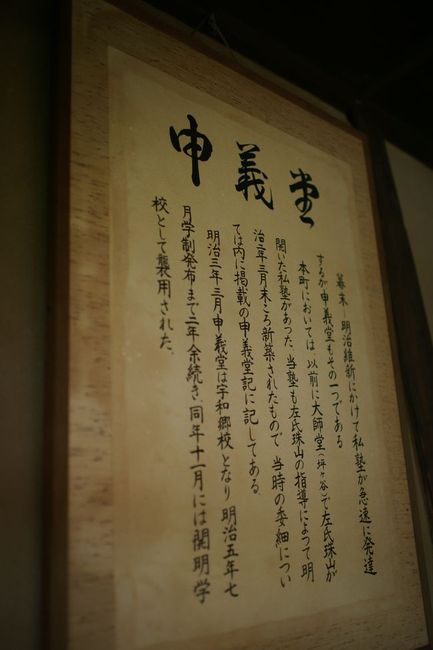 申義堂
幕末 明治維新にかけて私塾が急速に発達
するが申義堂もその一つである
本町においては、以前に大師堂(坪ヶ谷)で左氏珠山が
開いた私塾があった。当塾も左氏珠山の指導によって明
治二年三月末ころ新築されたもので、当時の委細につい
ては内に掲載の申義堂記に記してある。
明治三年三月申義堂は宇和郷校となり 明治五年七
月学制発布まで二年余続き、同年十一月には開明学
校として襲用された。